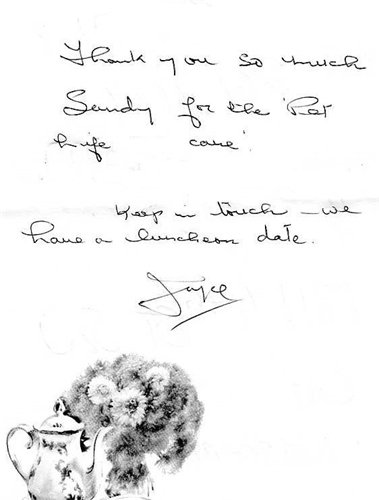 Thank you so much
Sandy for the 'Pet
life care'.
Keep in touch – we
have a luncheon date.
Joyce